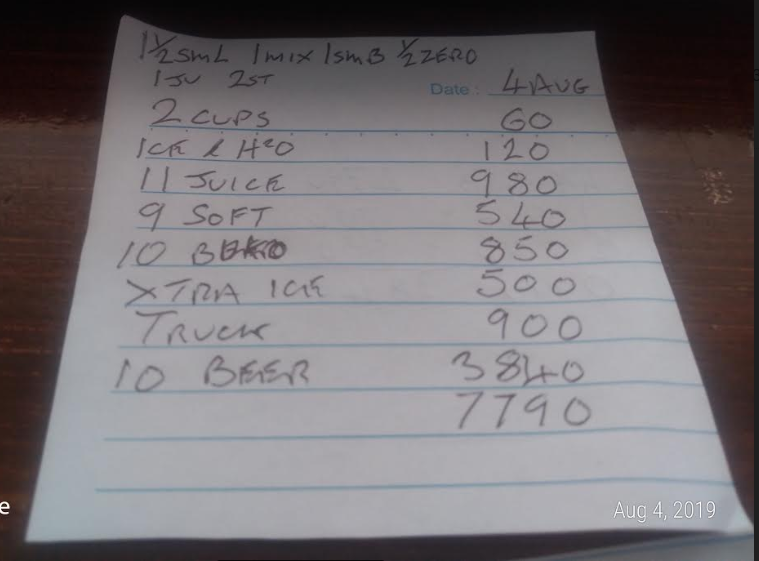 1 1/2 SML 1 MIX 1 SMB 1/2 ZERO
1 JU 2 ST
Date : 4 AUG
2 CUPS 60
ICE & H2O 120
11 JUICE 980
9 SOFT 540
10 850
XTRA ICE 500
TRUCK 900
10 BEER 3840
7790
e
Aug 4, 2019